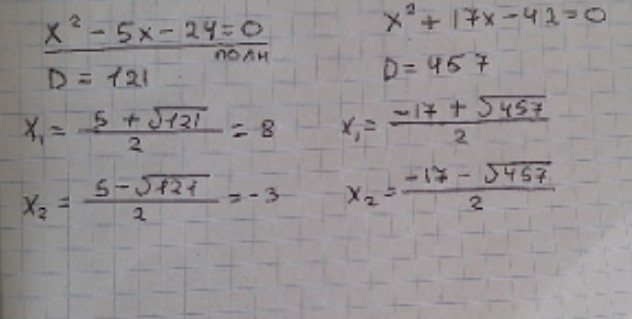 x² - 5x - 24 = 0
полн
D = 121
x₁ = (5 + √121)/2 = 8
x₂ = (5 - √121)/2 = -3
x² + 17x - 42 = 0
D = 457
x₁ = (-17 + √457)/2
x₂ = (-17 - √457)/2